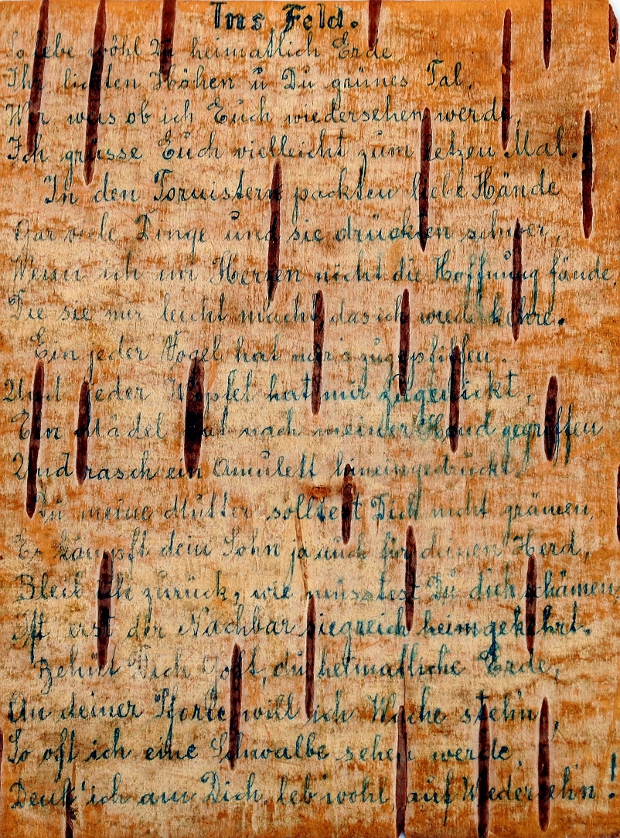 Ins Feld.
So lebe wohl Du heimatlich Erde
Ihr lichten Höhen u Du grünes Tal,
Wer weis ob ich Euch wiedersehen werde,
Ich grüsse Euch vielleicht zum letzen Mal.
In den Tornistern packten liebe Hände
Gar viele Dinge und sie drückten schwer,
Wenn ich im Herzen nicht die Hoffnung fände,
Die sie mir leicht macht, das ich wiederkehre.
Ein jeder Vogel hat mir's zugepfiffen.
Und jeder Wipfel hat mir zugenickt,
Ein Mädel hat nach meiner Hand gegriffen
Und rasch ein Amulett hineingedrückt.
Du meine Mutter solltest Dich nicht grämen,
Es kämpft dein Sohn ja auch für deinen Herd,
Bleib ich zurück, wie müsstest Du dich schämen,
Ist erst der Nachbar siegreich heimgekehrt.
Behüt Dich Gott, du heimatliche Erde,
An deiner Pforte will ich Wache steh'n,
So oft ich eine Schwalbe sehen werde,
Denk' ich an Dich, leb wohl auf Wiederseh'n!